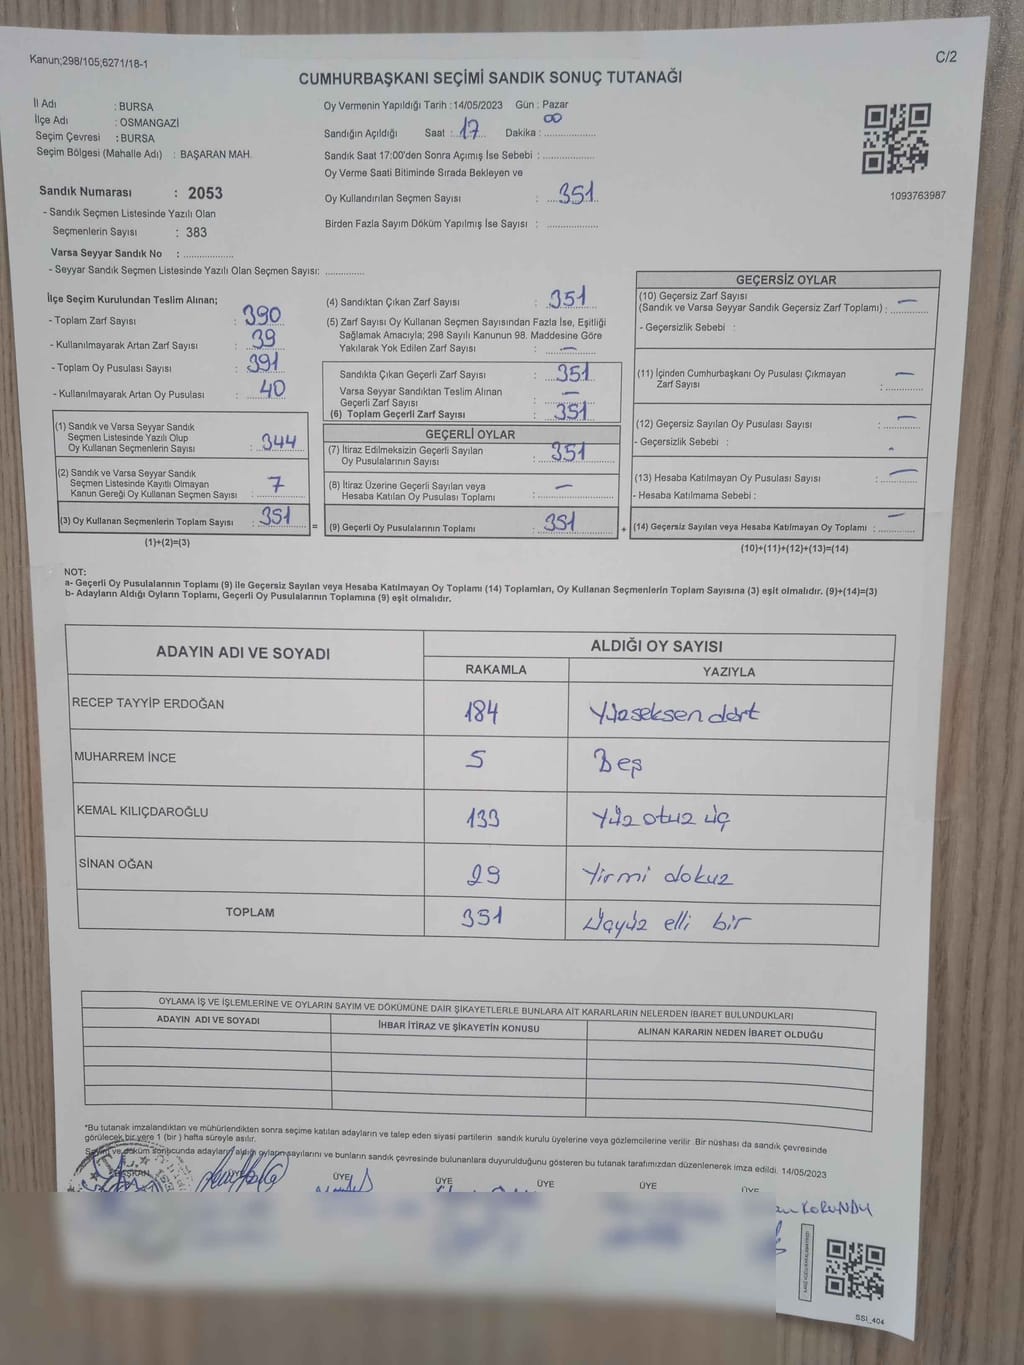 Kanun;298/105;6271/18-1
C/2
CUMHURBAŞKANI SEÇİMİ SANDIK SONUÇ TUTANAĞI
İl Adı : BURSA
İlçe Adı : OSMANGAZİ
Seçim Çevresi : BURSA
Seçim Bölgesi (Mahalle Adı) : BAŞARAN MAH.
Oy Vermenin Yapıldığı Tarih : 14/05/2023 Gün : Pazar
Sandığın Açıldığı Saat : 17 Dakika : 00
Sandık Saat 17:00'den Sonra Açımış İse Sebebi :
Oy Verme Saati Bitiminde Sırada Bekleyen ve
Oy Kullandırılan Seçmen Sayısı : 351
Birden Fazla Sayım Döküm Yapılmış İse Sayısı :
1093763987
Sandık Numarası : 2053
- Sandık Seçmen Listesinde Yazılı Olan
Seçmenlerin Sayısı : 383
Varsa Seyyar Sandık No :
- Seyyar Sandık Seçmen Listesinde Yazılı Olan Seçmen Sayısı:
İlçe Seçim Kurulundan Teslim Alınan;
- Toplam Zarf Sayısı : 390
- Kullanılmayarak Artan Zarf Sayısı : 39
- Toplam Oy Pusulası Sayısı : 391
- Kullanılmayarak Artan Oy Pusulası : 40
(1) Sandık ve Varsa Seyyar Sandık
Seçmen Listesinde Yazılı Olup
Oy Kullanan Seçmenlerin Sayısı : 344
(2) Sandık ve Varsa Seyyar Sandık
Seçmen Listesinde Kayıtlı Olmayan
Kanun Gereği Oy Kullanan Seçmen Sayısı : 7
(3) Oy Kullanan Seçmenlerin Toplam Sayısı : 351
(1)+(2)=(3)
(4) Sandıktan Çıkan Zarf Sayısı : 351
(5) Zarf Sayısı Oy Kullanan Seçmen Sayısından Fazla İse, Eşitliği
Sağlamak Amacıyla; 298 Sayılı Kanunun 98. Maddesine Göre
Yakılarak Yok Edilen Zarf Sayısı : —
Sandıkta Çıkan Geçerli Zarf Sayısı : 351
Varsa Seyyar Sandıktan Teslim Alınan
Geçerli Zarf Sayısı : —
(6) Toplam Geçerli Zarf Sayısı : 351
GEÇERLİ OYLAR
(7) İtiraz Edilmeksizin Geçerli Sayılan
Oy Pusulalarının Sayısı : 351
(8) İtiraz Üzerine Geçerli Sayılan veya
Hesaba Katılan Oy Pusulası Toplamı : —
= (9) Geçerli Oy Pusulalarının Toplamı : 351 +
GEÇERSİZ OYLAR
(10) Geçersiz Zarf Sayısı
(Sandık ve Varsa Seyyar Sandık Geçersiz Zarf Toplamı) : —
- Geçersizlik Sebebi :
(11) İçinden Cumhurbaşkanı Oy Pusulası Çıkmayan
Zarf Sayısı : —
(12) Geçersiz Sayılan Oy Pusulası Sayısı : —
- Geçersizlik Sebebi :
(13) Hesaba Katılmayan Oy Pusulası Sayısı : —
- Hesaba Katılmama Sebebi :
(14) Geçersiz Sayılan veya Hesaba Katılmayan Oy Toplamı : —
(10)+(11)+(12)+(13)=(14)
NOT:
a- Geçerli Oy Pusulalarının Toplamı (9) ile Geçersiz Sayılan veya Hesaba Katılmayan Oy Toplamı (14) Toplamları, Oy Kullanan Seçmenlerin Toplam Sayısına (3) eşit olmalıdır. (9)+(14)=(3)
b- Adayların Aldığı Oyların Toplamı, Geçerli Oy Pusulalarının Toplamına (9) eşit olmalıdır.
ADAYIN ADI VE SOYADI
ALDIĞI OY SAYISI
RAKAMLA YAZIYLA
RECEP TAYYİP ERDOĞAN 184 Yüzseksen dört
MUHARREM İNCE 5 Beş
KEMAL KILIÇDAROĞLU 133 Yüz otuz üç
SİNAN OĞAN 29 Yirmi dokuz
TOPLAM 351 Üçyüz elli bir
OYLAMA İŞ VE İŞLEMLERİNE VE OYLARIN SAYIM VE DÖKÜMÜNE DAİR ŞİKAYETLERLE BUNLARA AİT KARARLARIN NELERDEN İBARET BULUNDUKLARI
ADAYIN ADI VE SOYADI İHBAR İTİRAZ VE ŞİKAYETİN KONUSU ALINAN KARARIN NEDEN İBARET OLDUĞU
*Bu tutanak imzalandıktan ve mühürlendikten sonra seçime katılan adayların ve talep eden siyasi partilerin sandık kurulu üyelerine veya gözlemcilerine verilir. Bir nüshası da sandık çevresinde
görülecek bir yere 1 (bir ) hafta süreyle asılır.
Sayım ve döküm sonucunda adayların aldığı oyların sayılarını ve bunların sandık çevresinde bulunanlara duyurulduğunu gösteren bu tutanak tarafımızdan düzenlenerek imza edildi. 14/05/2023
BAŞKAN ÜYE ÜYE ÜYE ÜYE ÜYE
KORUNDU
SSI_404